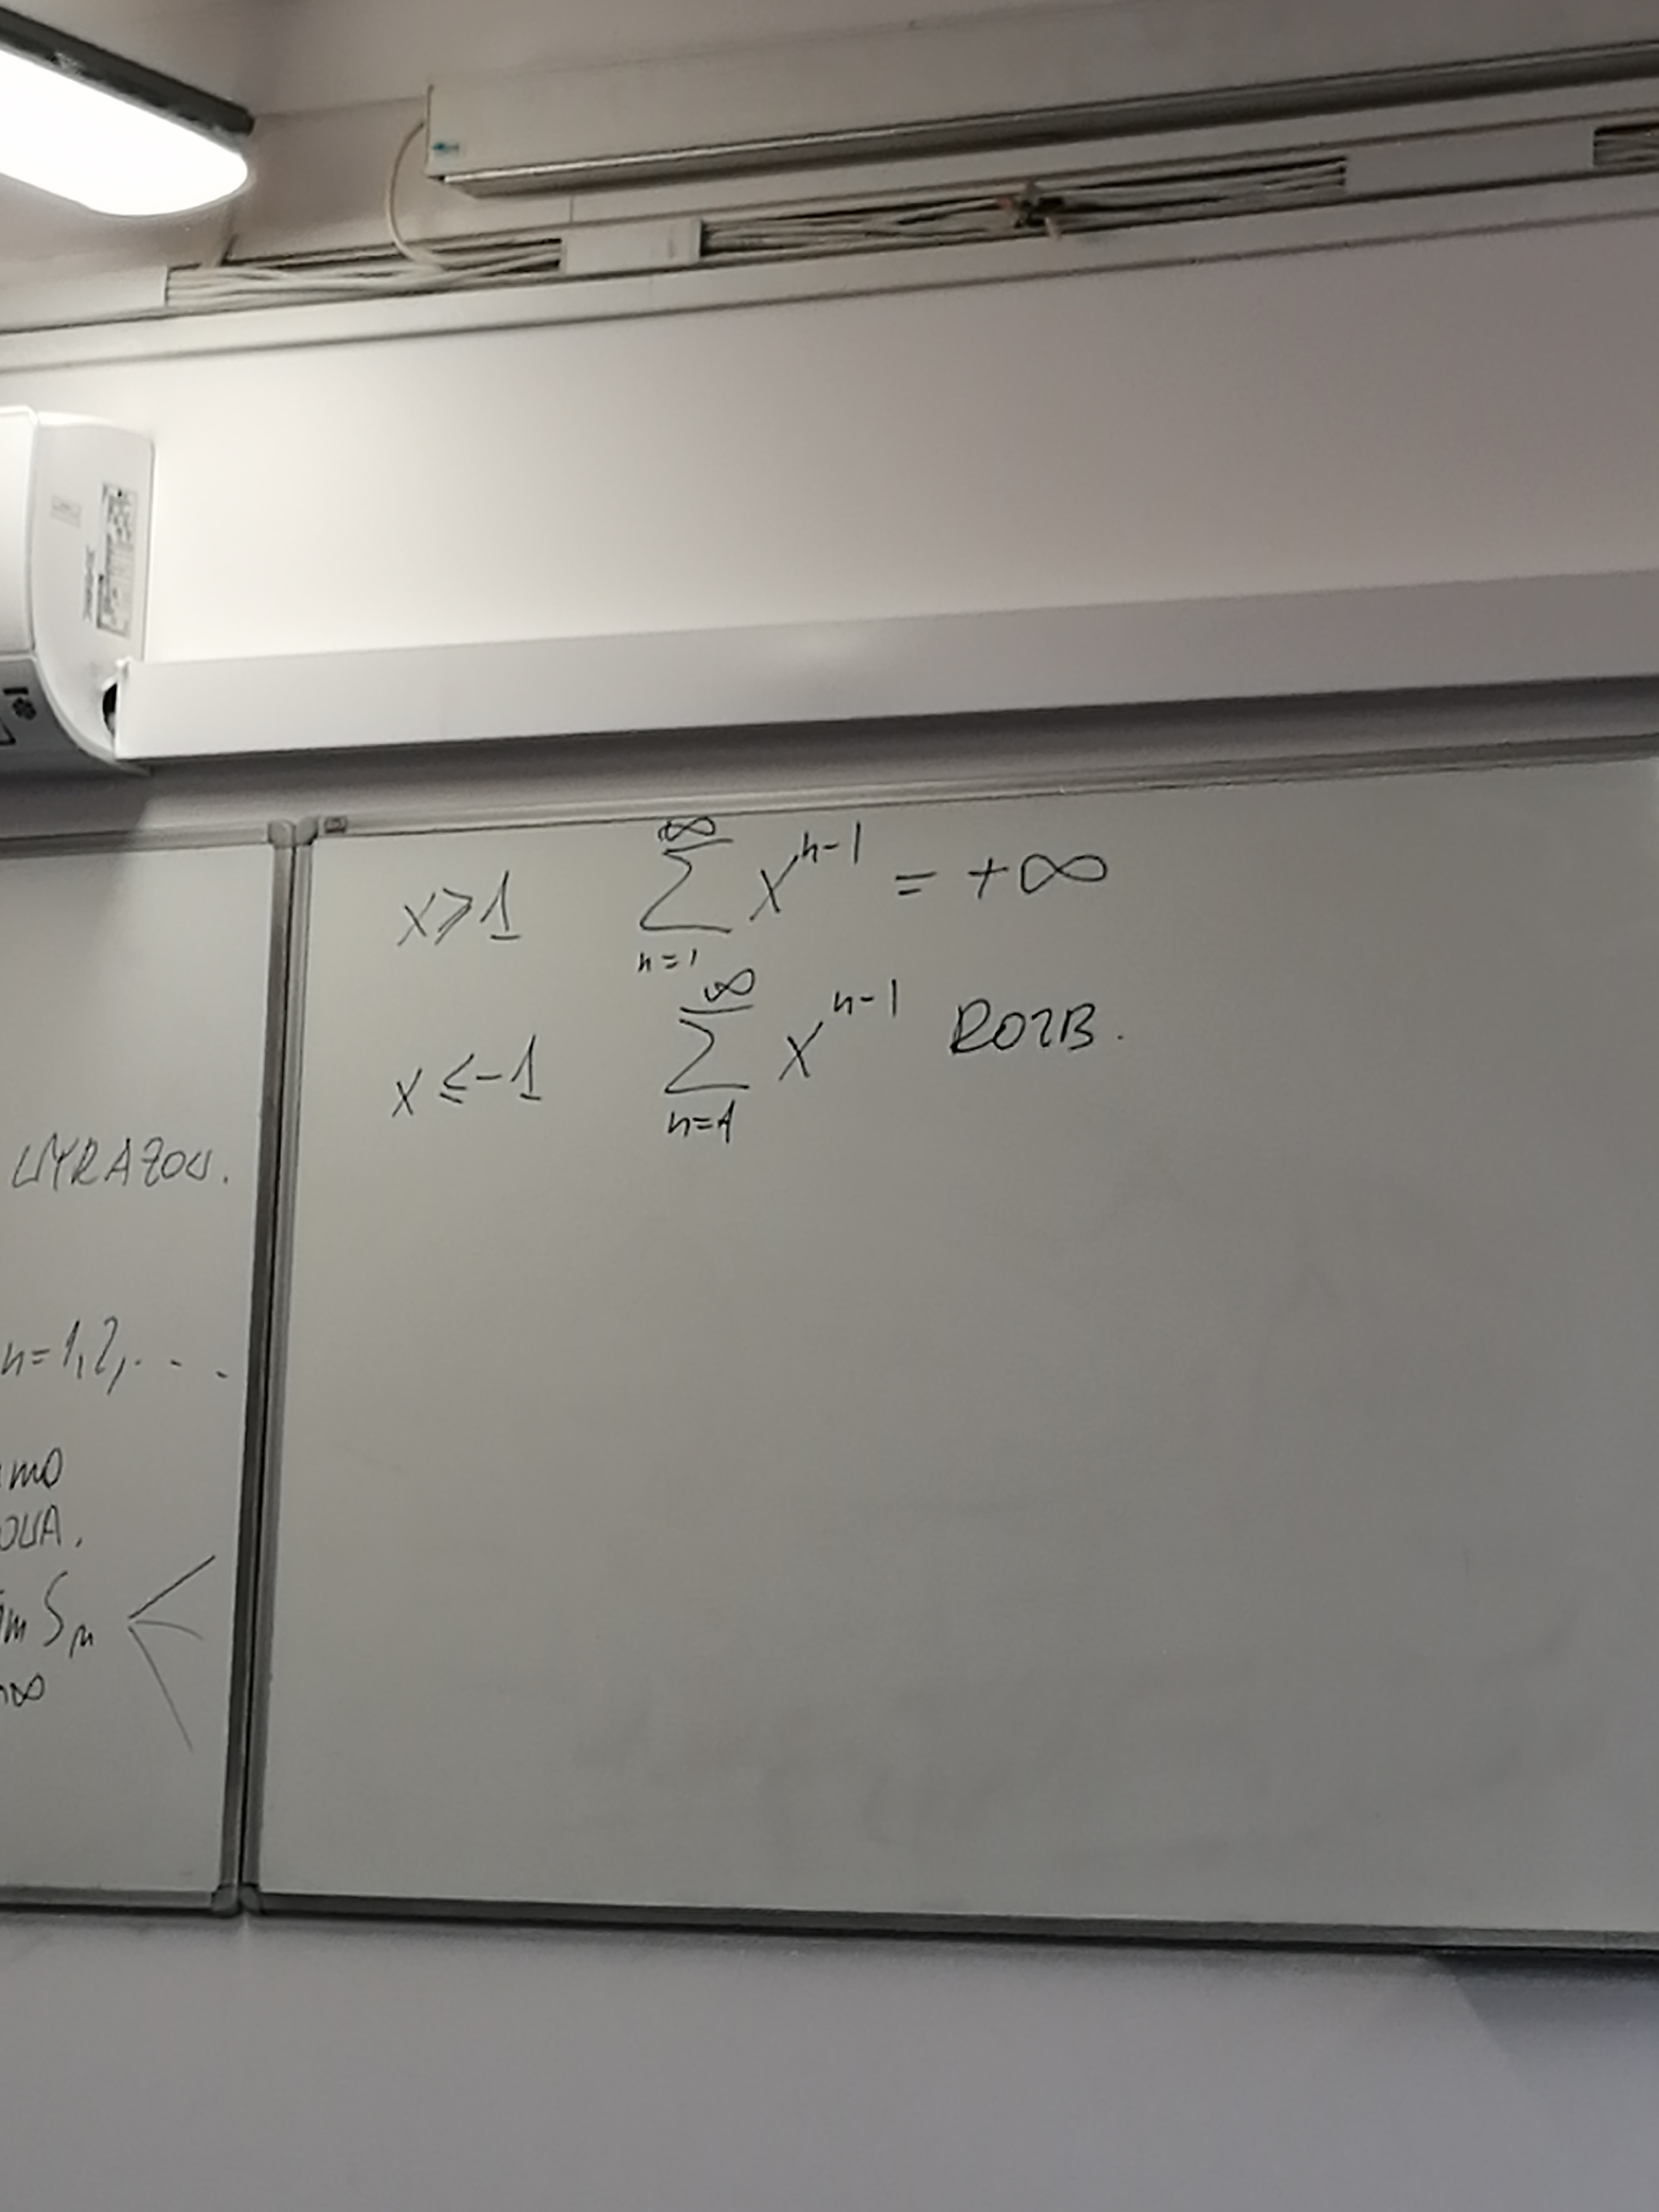 WYRAZÓW.
n=1,2,...
lim Sₙ
x⩾1 ∑_{n=1}^{∞} x^{n-1} = +∞
x≤-1 ∑_{n=1}^{∞} x^{n-1} ROZB.